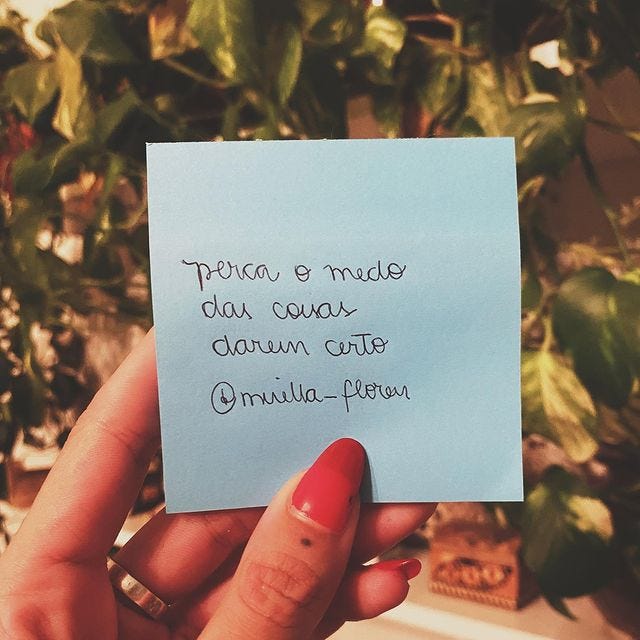 perca o medo
das coisas
darem certo
@mirella_floren